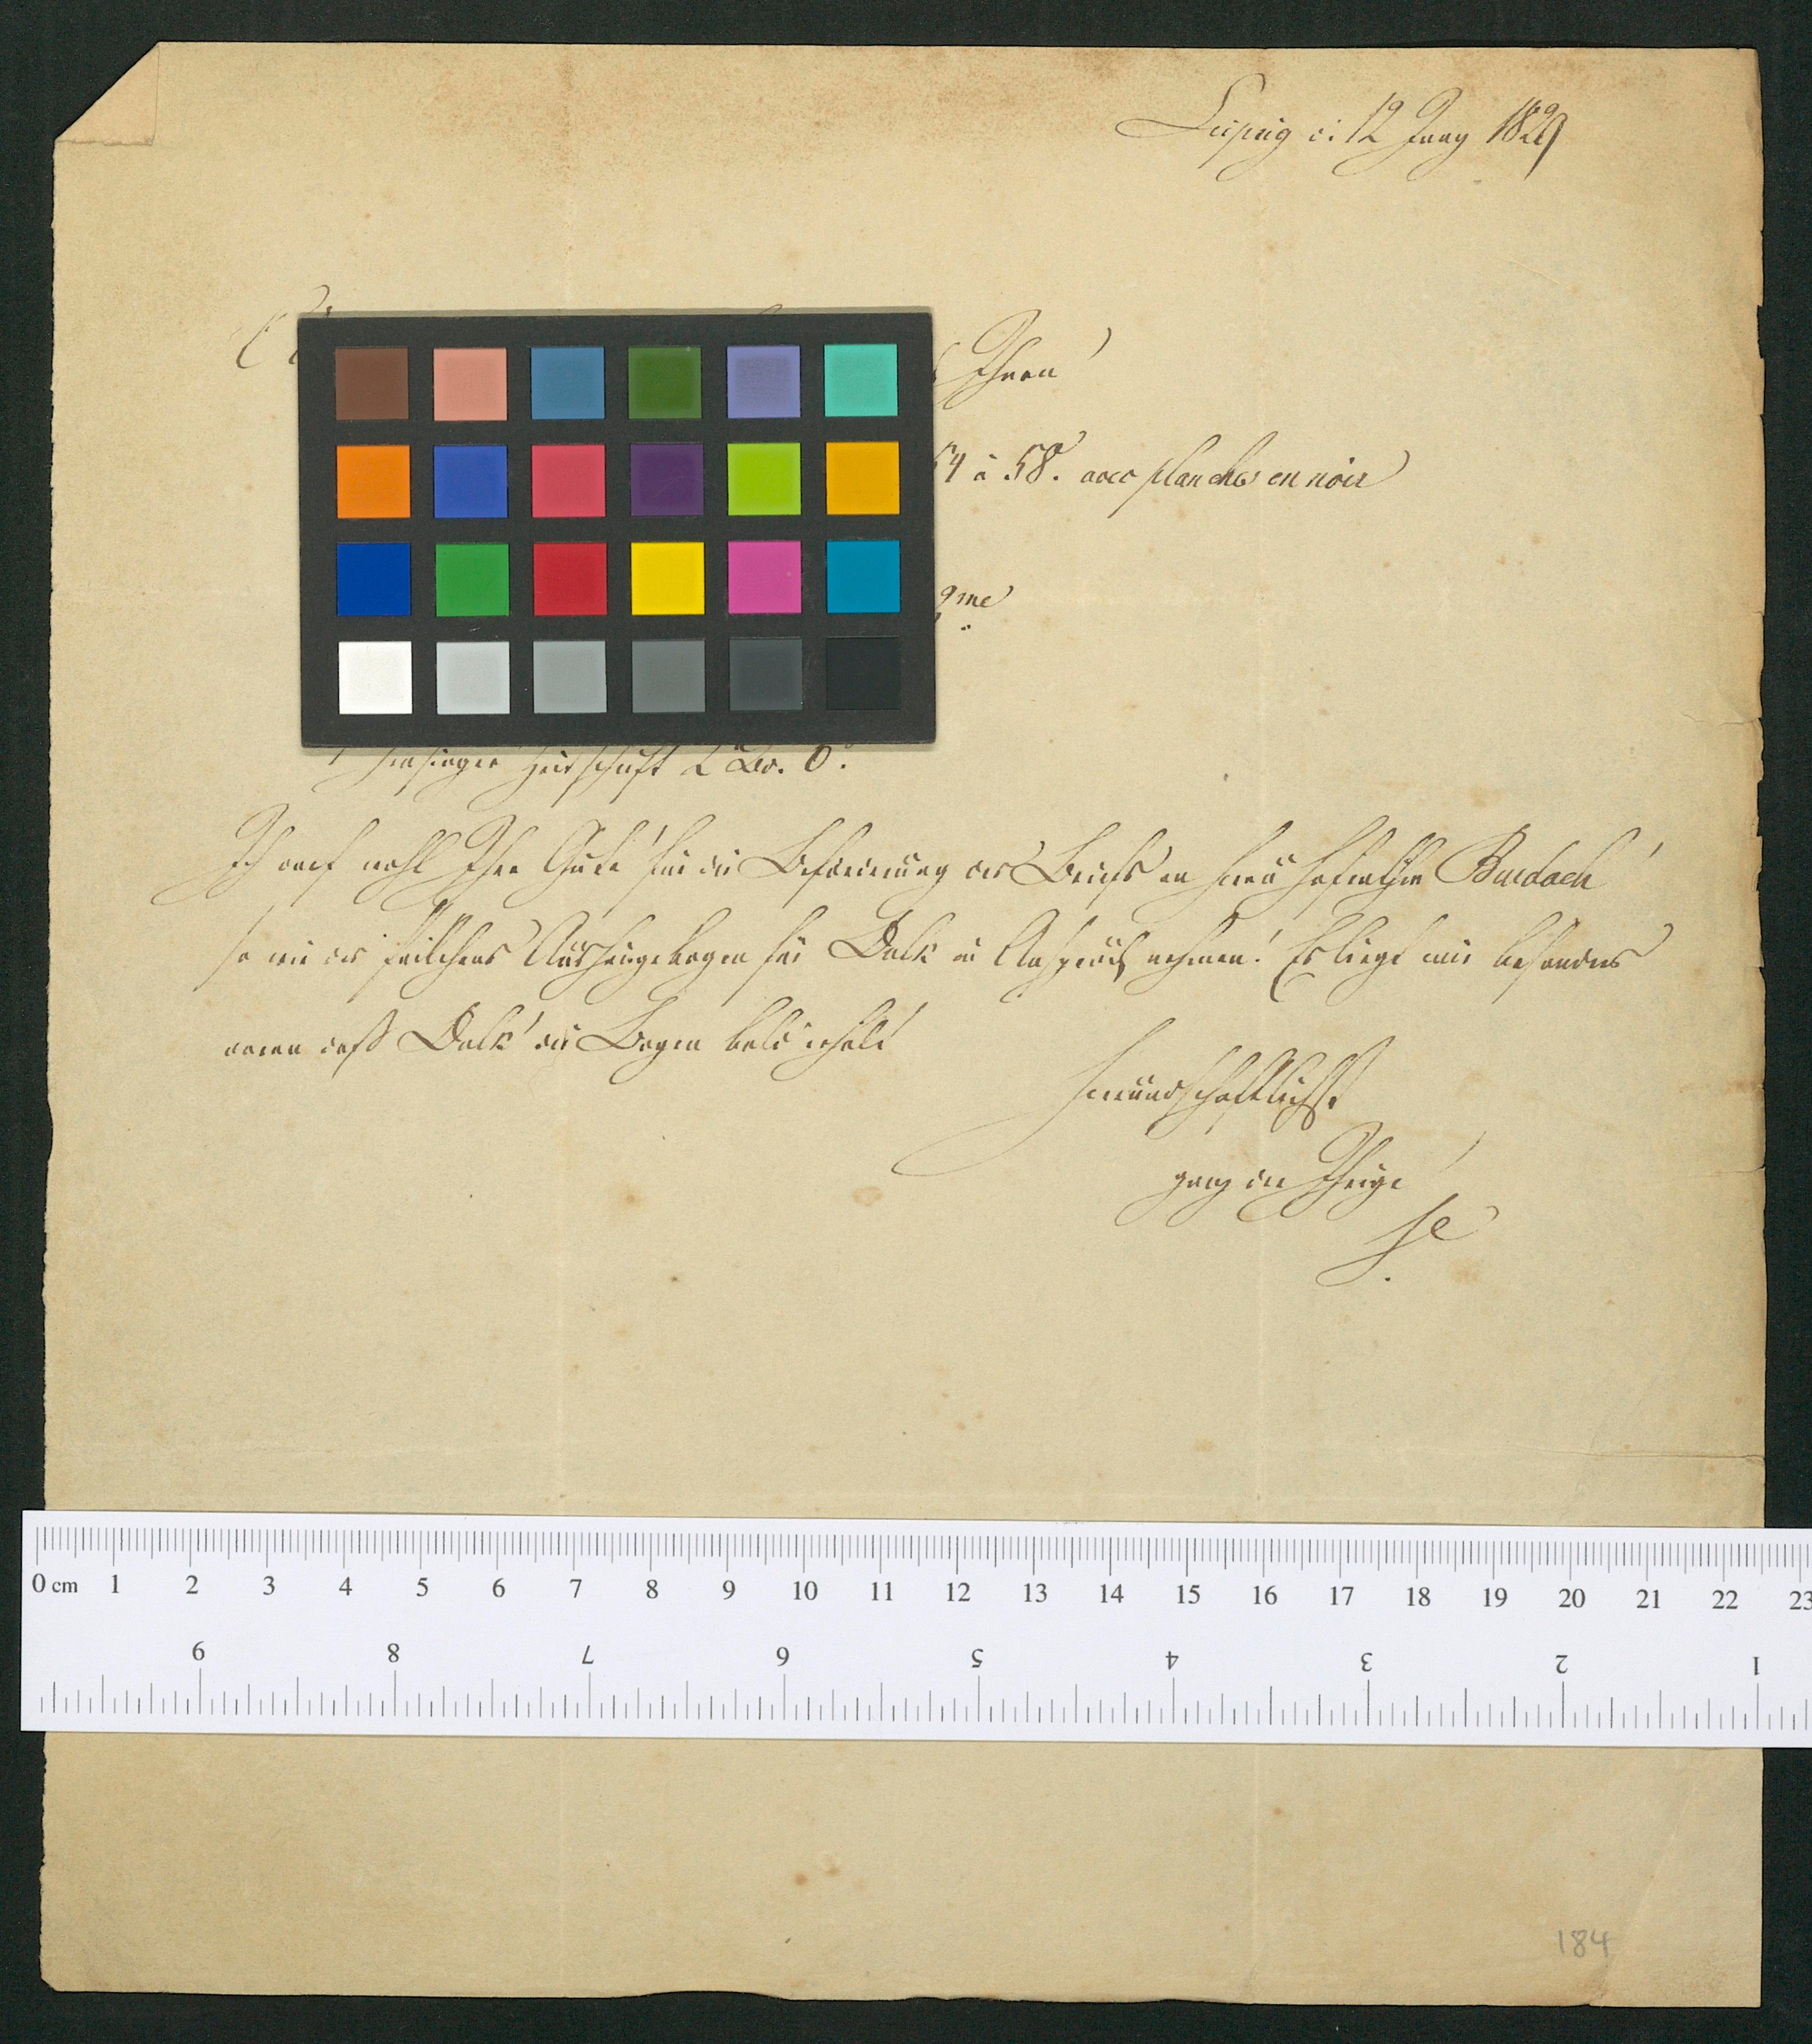 Leipzig d. 12 Juny 1829
Ihnen
54 à 58. avec planches en noir
9me
Heusinger Zeitschrift 2 Bd. 6.
Ich darf wohl Ihre Güte für die Beförderung des Briefs an Herrn Hofrathe Burdach
so wie des Aushängebogen für Dulk in Anspruch nehmen! Es liegt mir besonders
daran daß Dulk die Bogen bald erhält
Freundschaftlichst
ganz der Ihrige
184
0 cm 1 2 3 4 5 6 7 8 9 10 11 12 13 14 15 16 17 18 19 20 21 22 23
9 8 7 6 5 4 3 2 1